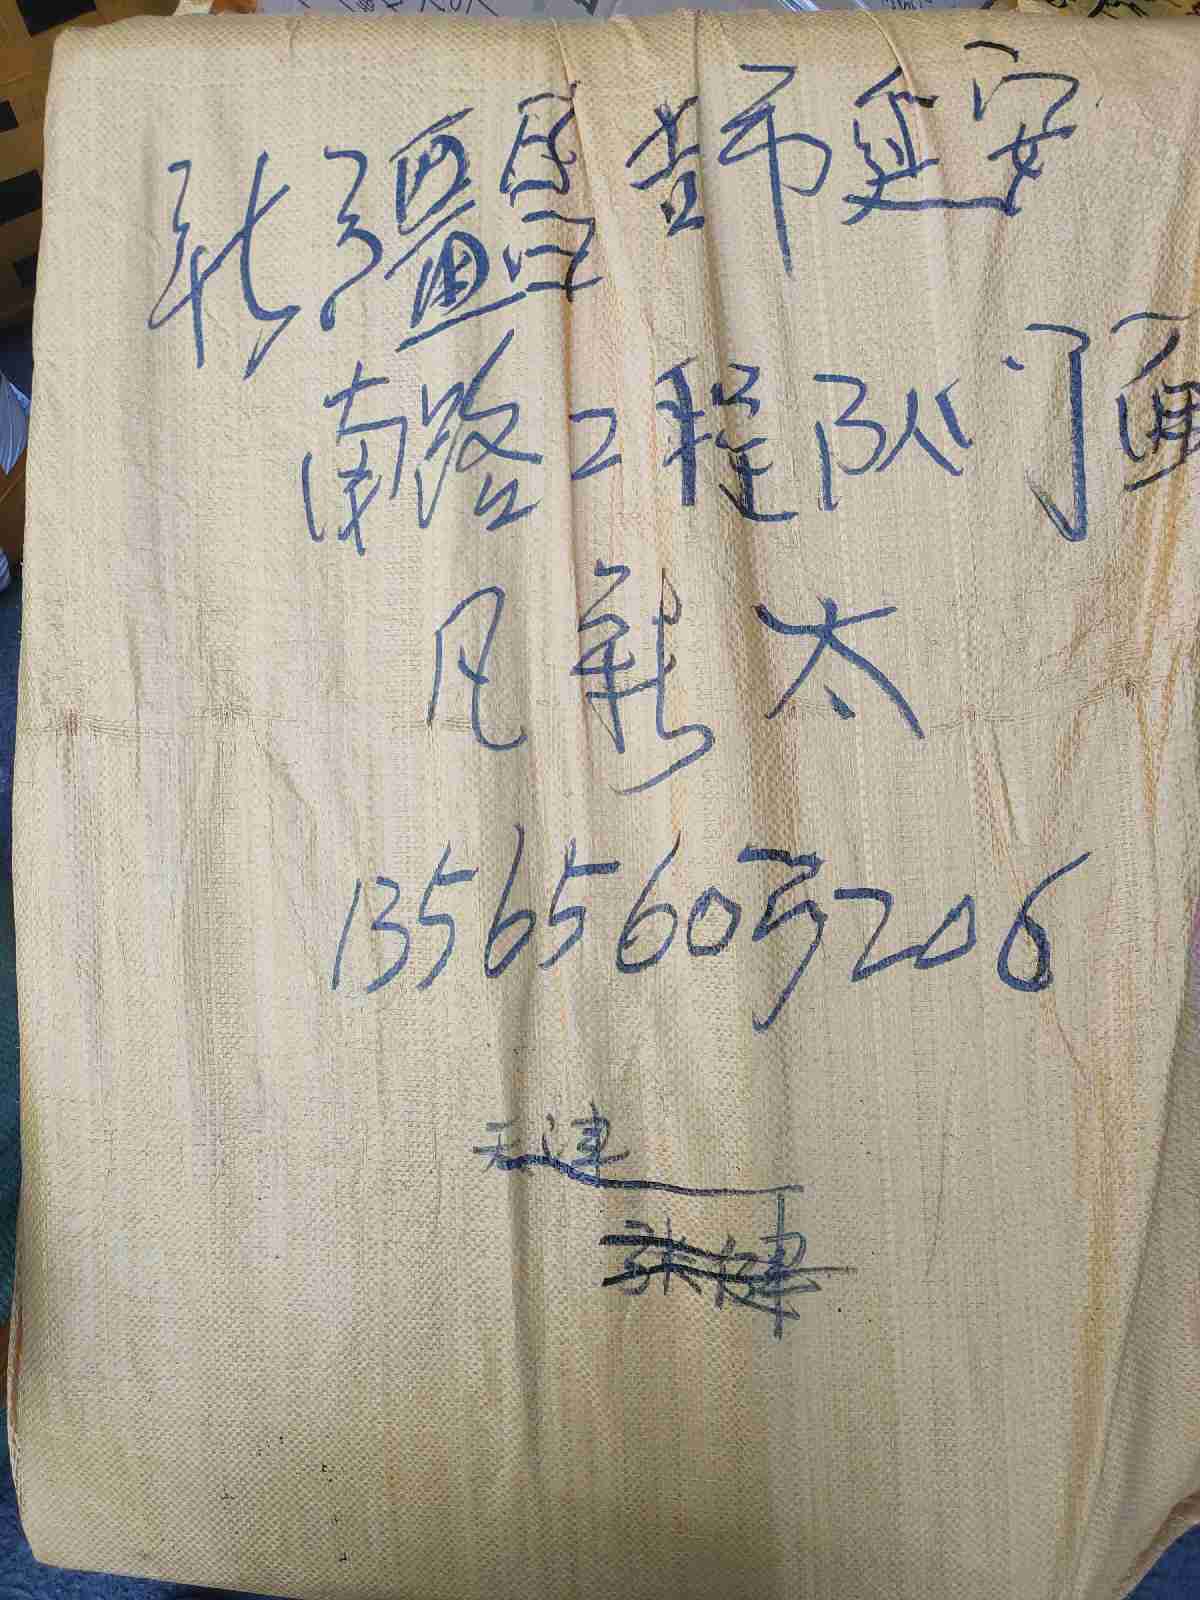 新疆昌吉市延安
南路工程队门面
新太
13565603206
天津
张健